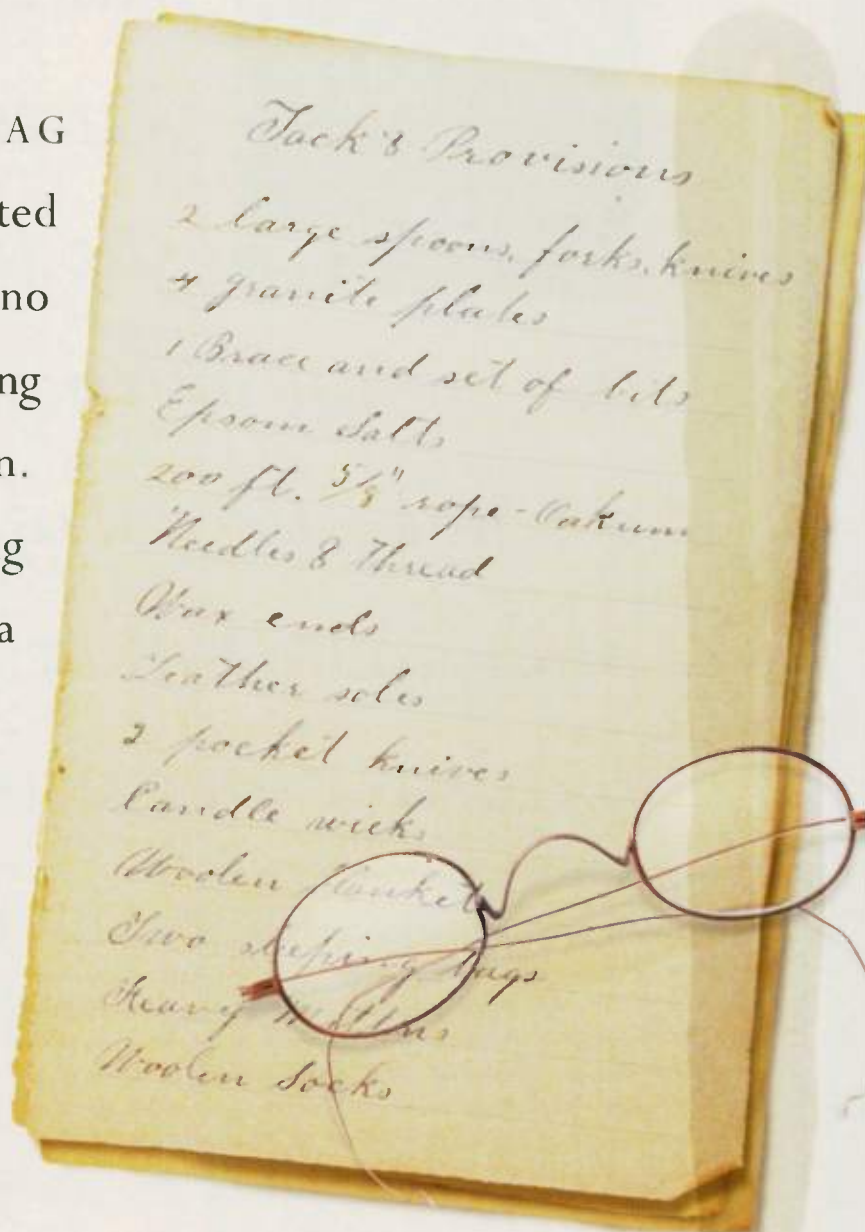 AG
ted
no
ng
n.
g
a
Jack's Provisions
2 large spoons, forks, knives
4 granite plates
1 Brace and set of bits
Epsom Salts
200 ft. 5/8" rope - Oakum
Needles & Thread
Wax ends
Leather soles
2 pocket knives
Candle wicks
Woolen blankets
Two sleeping bags
Heavy mittens
Woolen Socks